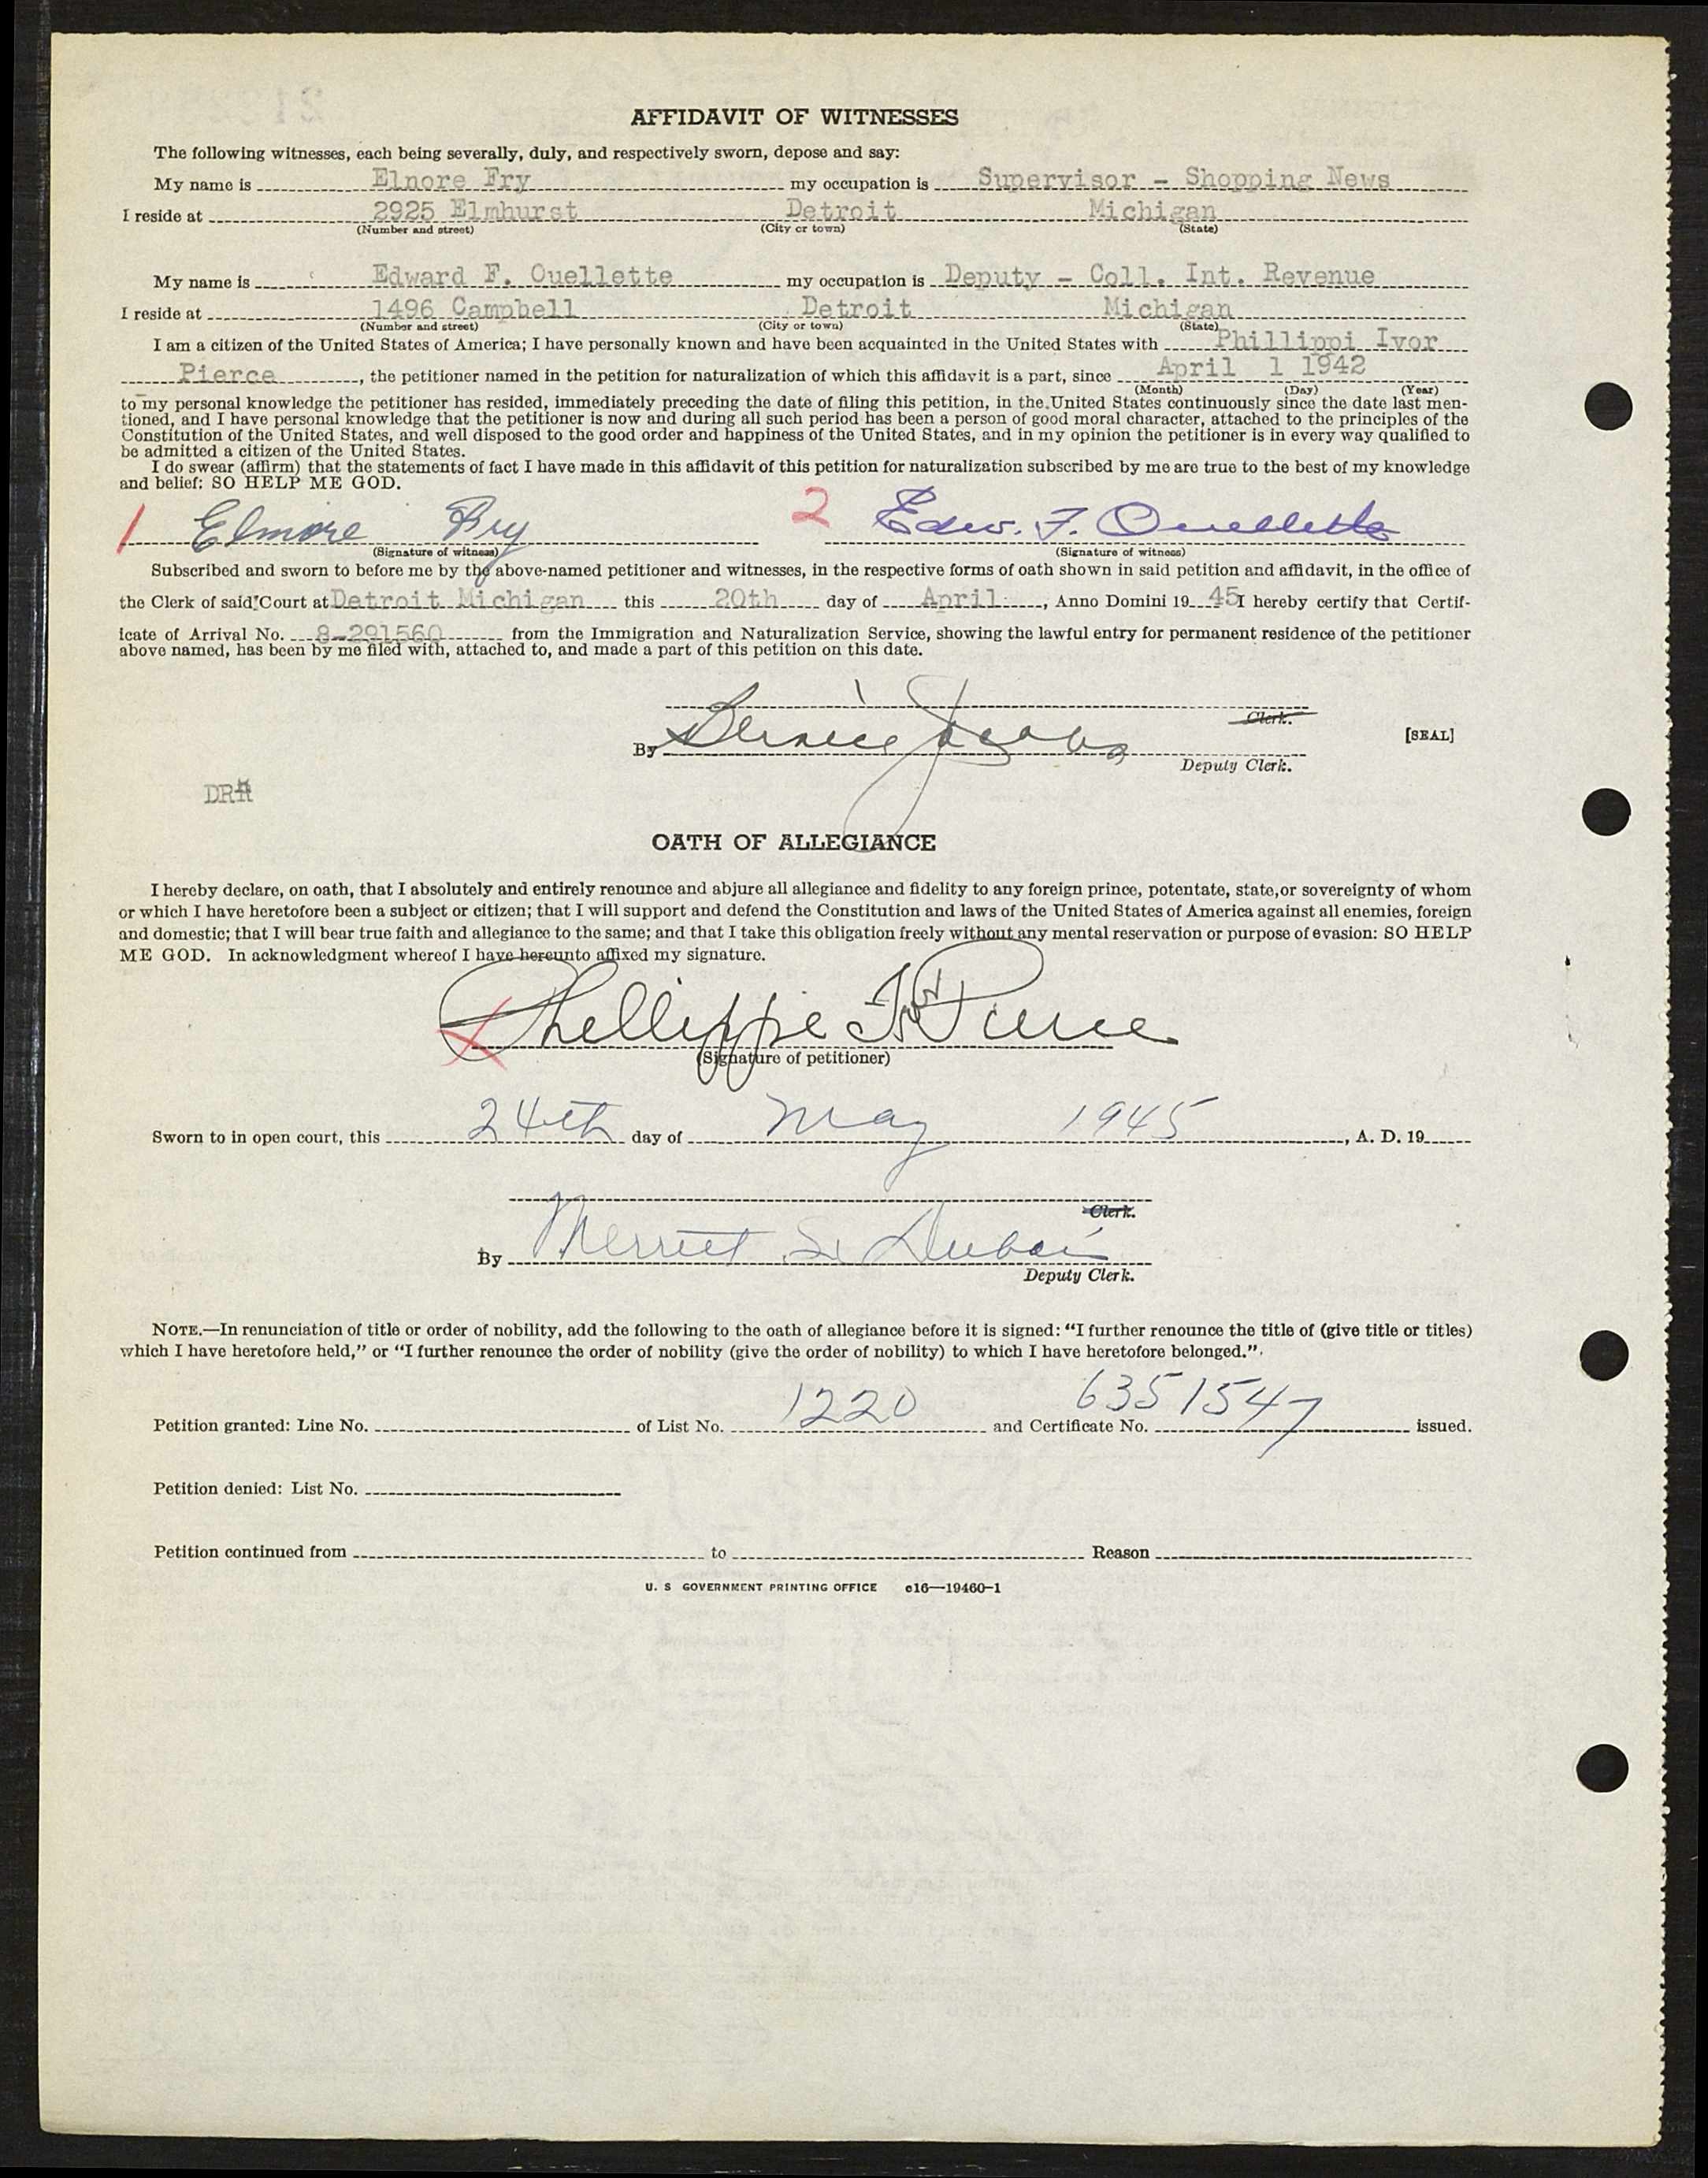 AFFIDAVIT OF WITNESSES
The following witnesses, each being severally, duly, and respectively sworn, depose and say:
My name is Elnore Fry my occupation is Supervisor - Shopping News
I reside at 2925 Elmhurst Detroit Michigan
(Number and street) (City or town) (State)
My name is Edward F. Ouellette my occupation is Deputy - Coll. Int. Revenue
I reside at 1496 Campbell Detroit Michigan
(Number and street) (City or town) (State)
I am a citizen of the United States of America; I have personally known and have been acquainted in the United States with Phillippi Ivor
Pierce, the petitioner named in the petition for naturalization of which this affidavit is a part, since April 1 1942
(Month) (Day) (Year)
to my personal knowledge the petitioner has resided, immediately preceding the date of filing this petition, in the United States continuously since the date last men-
tioned, and I have personal knowledge that the petitioner is now and during all such period has been a person of good moral character, attached to the principles of the
Constitution of the United States, and well disposed to the good order and happiness of the United States, and in my opinion the petitioner is in every way qualified to
be admitted a citizen of the United States.
I do swear (affirm) that the statements of fact I have made in this affidavit of this petition for naturalization subscribed by me are true to the best of my knowledge
and belief: SO HELP ME GOD.
1 Elmore Fry 2 Edw. F. Ouellette
(Signature of witness) (Signature of witness)
Subscribed and sworn to before me by the above-named petitioner and witnesses, in the respective forms of oath shown in said petition and affidavit, in the office of
the Clerk of said Court at Detroit Michigan this 20th day of April, Anno Domini 19 45 I hereby certify that Certif-
icate of Arrival No. 8-291560 from the Immigration and Naturalization Service, showing the lawful entry for permanent residence of the petitioner
above named, has been by me filed with, attached to, and made a part of this petition on this date.
Clerk.
By Bernice Jacobs [SEAL]
Deputy Clerk.
OATH OF ALLEGIANCE
I hereby declare, on oath, that I absolutely and entirely renounce and abjure all allegiance and fidelity to any foreign prince, potentate, state, or sovereignty of whom
or which I have heretofore been a subject or citizen; that I will support and defend the Constitution and laws of the United States of America against all enemies, foreign
and domestic; that I will bear true faith and allegiance to the same; and that I take this obligation freely without any mental reservation or purpose of evasion: SO HELP
ME GOD. In acknowledgment whereof I have hereunto affixed my signature.
X Phellippie Pierce
(Signature of petitioner)
Sworn to in open court, this 24th day of May 1945, A. D. 19
Clerk.
By Merriet S.
Deputy Clerk.
NOTE.—In renunciation of title or order of nobility, add the following to the oath of allegiance before it is signed: "I further renounce the title of (give title or titles)
which I have heretofore held," or "I further renounce the order of nobility (give the order of nobility) to which I have heretofore belonged."
Petition granted: Line No. of List No. 1220 and Certificate No. 6351547 issued.
Petition denied: List No.
Petition continued from to Reason
U. S GOVERNMENT PRINTING OFFICE c16—19460-1